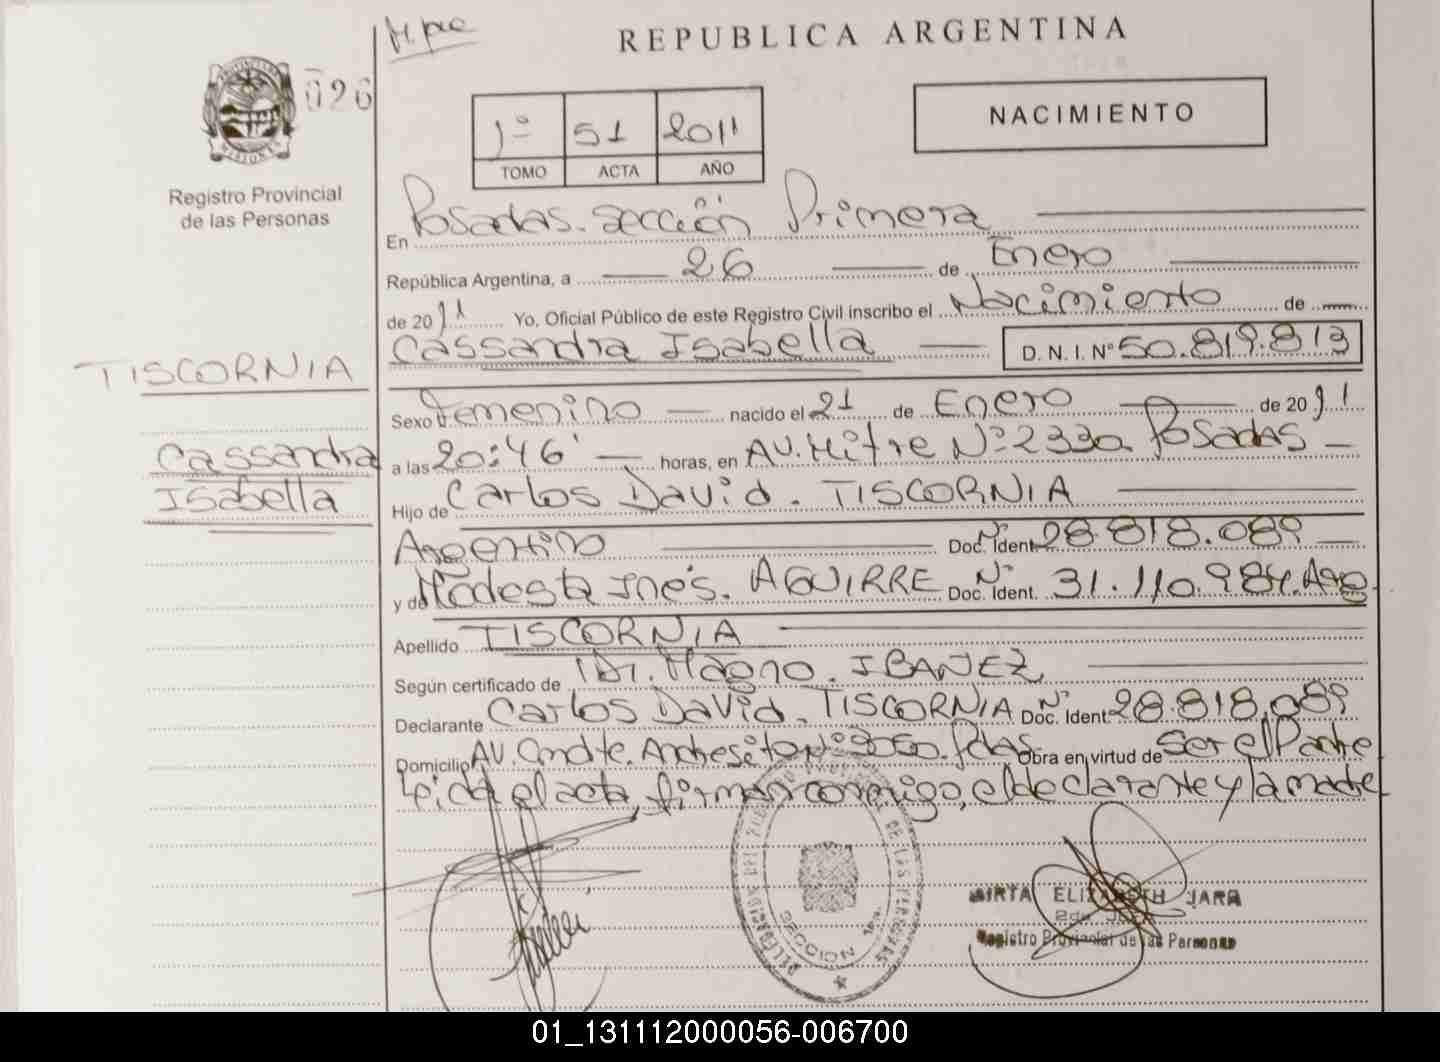 H. pae
REPUBLICA ARGENTINA
026
PROVINCIA DE MISIONES
1º 51 2011
TOMO ACTA AÑO
NACIMIENTO
Registro Provincial
de las Personas
En Posadas. sección Primera
República Argentina, a 26 de Enero
de 2011 Yo, Oficial Público de este Registro Civil inscribo el Nacimiento de
Cassandra Isabella D. N. I. Nº 50.819.813
TISCORNIA
Sexo Femenino nacido el 21 de Enero de 2011
Cassandra
Isabella
a las 20:46' horas, en AV. Mitre Nº 2330. Posadas
Hijo de Carlos David. TISCORNIA
Argentino Doc. Ident. Nº 28.818.089
y de Modesta Inés. AGUIRRE Doc. Ident. Nº 31.110.984. Arg
Apellido TISCORNIA
Según certificado de Dr. Magno. IBAÑEZ
Declarante Carlos David. TISCORNIA Doc. Ident. Nº 28.818.089
Domicilio AV. Cmdte. Andresito Nº 3050. Pdas Obra en virtud de Ser el Padre
Leida el acta, firman conmigo, el declarante y la madre
DELEGACION DEL REGISTRO PROVINCIAL DE LAS PERSONAS
SECCION 1ra.
MIRTA ELIZABETH JARA
2da JEFA
Registro Provincial de las Personas
01_131112000056-006700